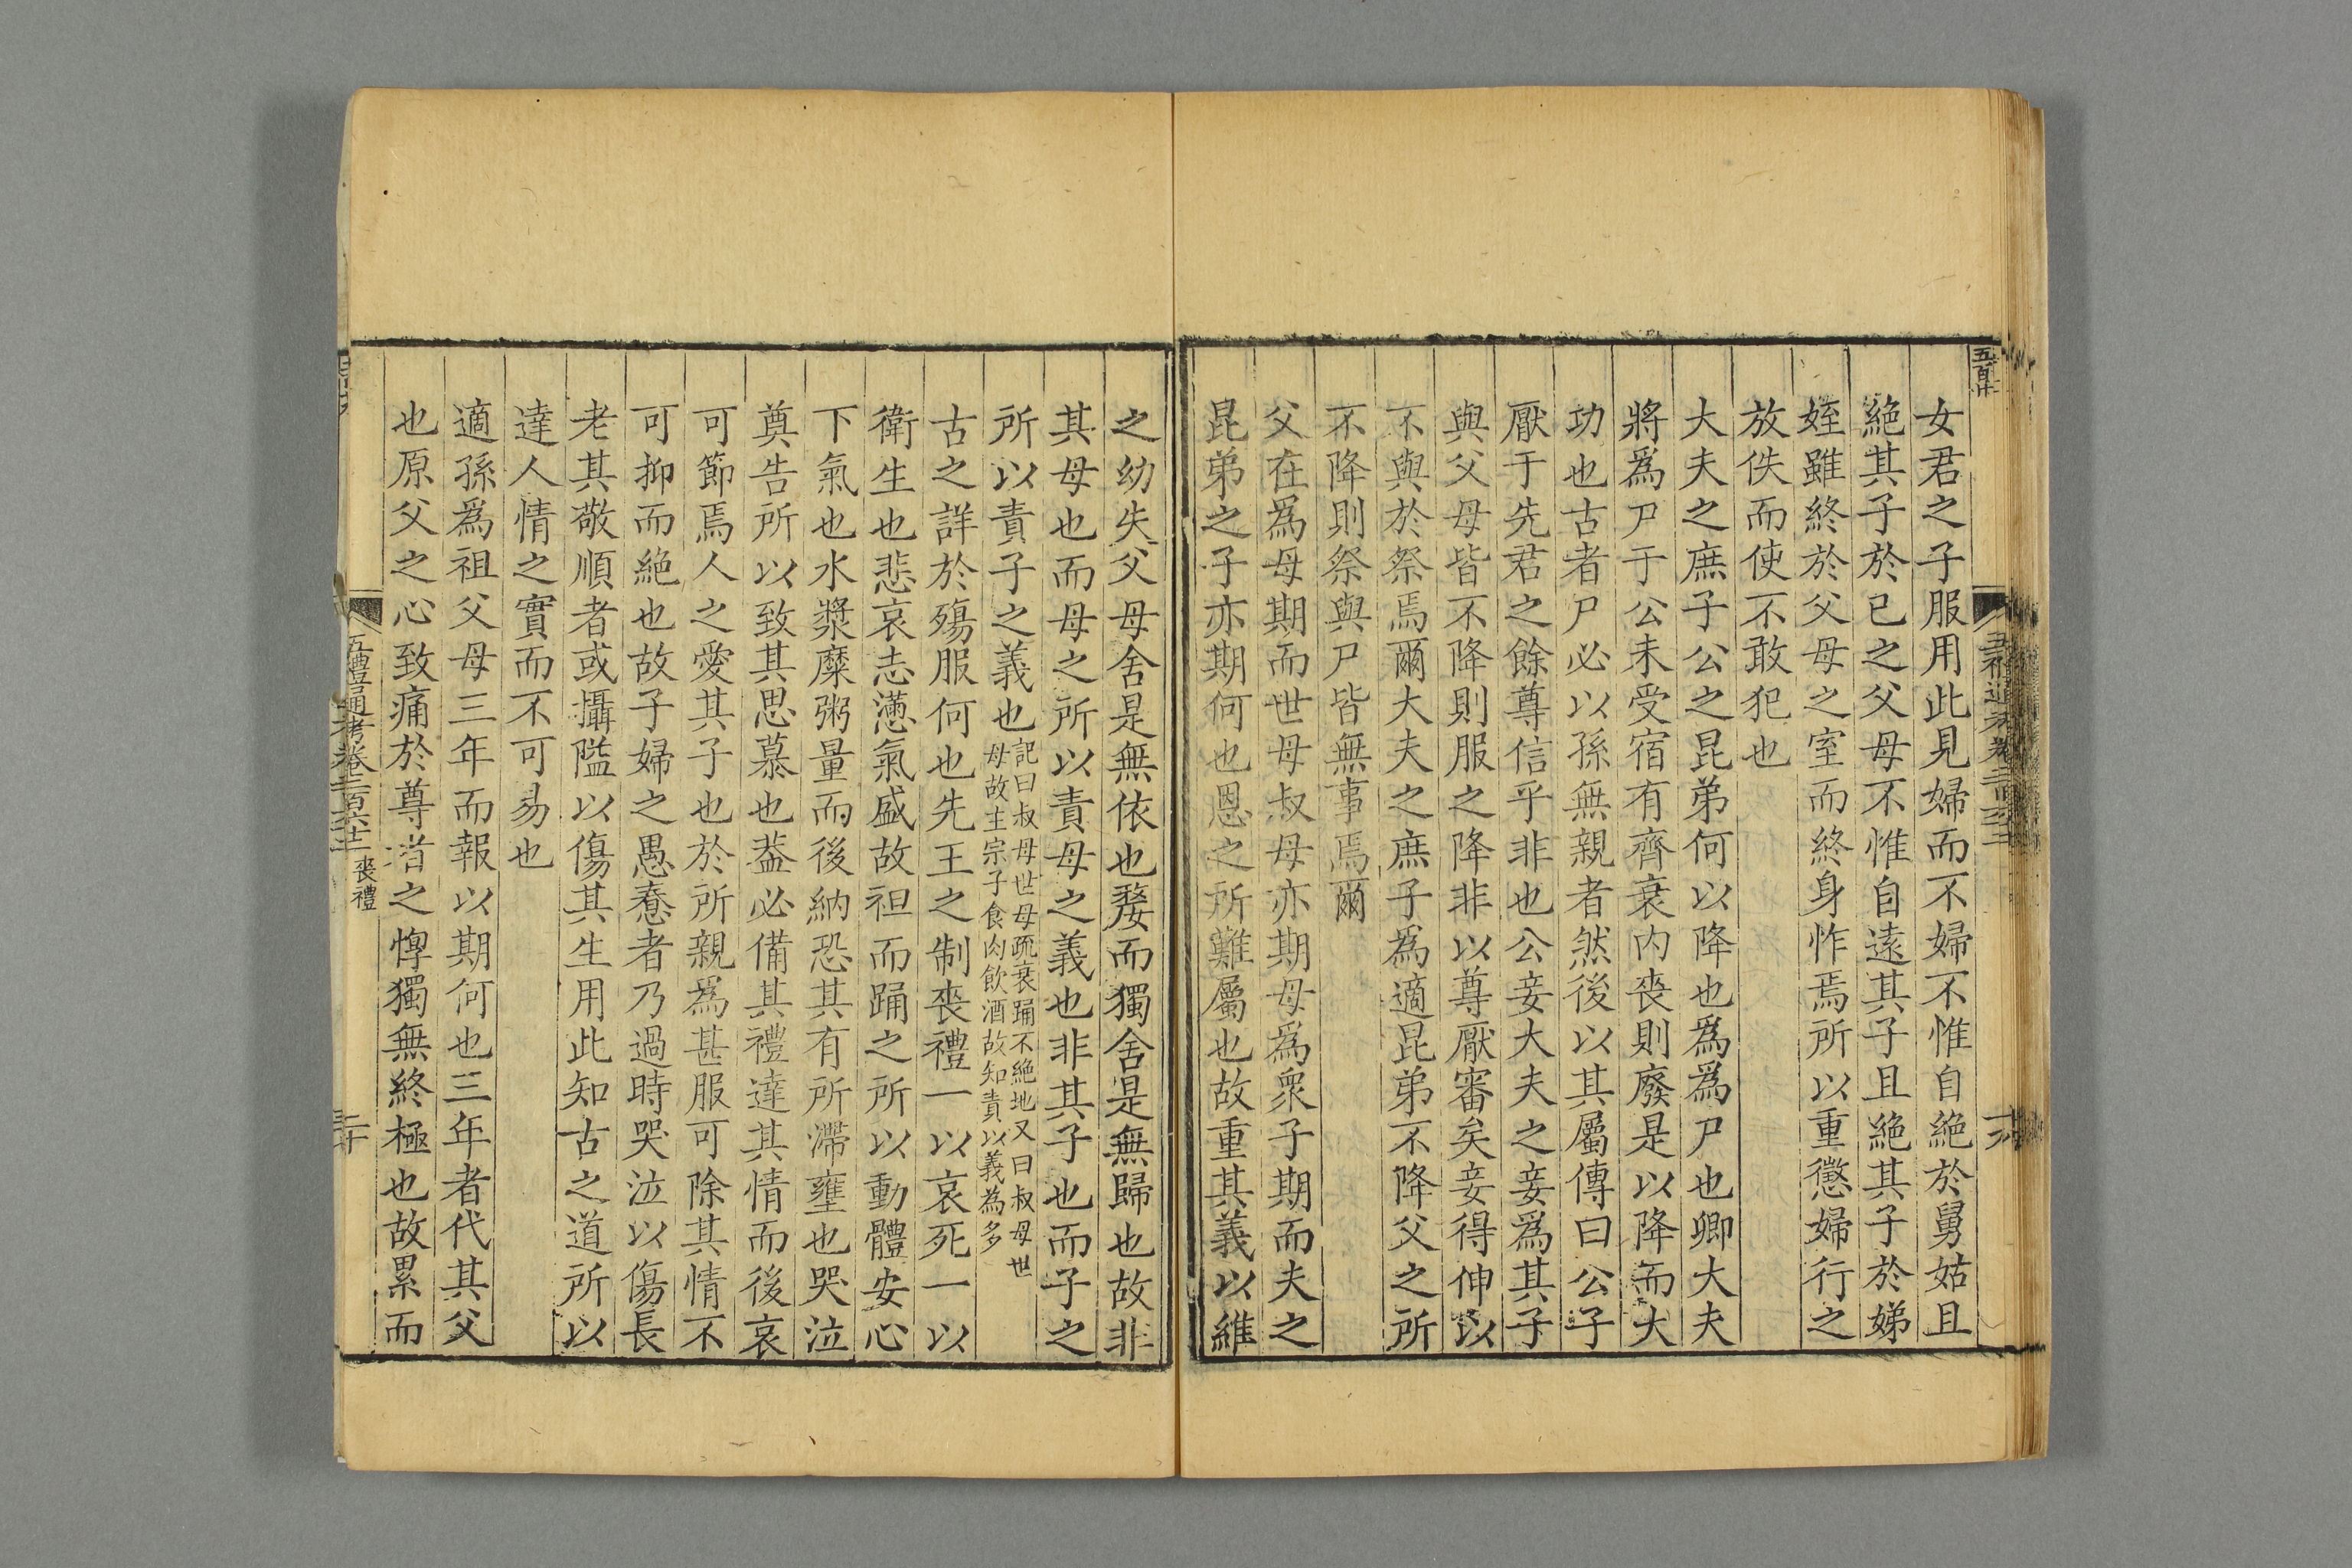 女君之子服用此見婦而不婦不惟自絶於舅姑且
絶其子於已之父母不惟自遠其子且絶其子於娣
姪雖終於父母之室而終身怍焉所以重懲婦行之
放佚而使不敢犯也
大夫之庶子公之昆弟何以降也爲爲尸也卿大夫
將爲尸于公未受宿有齊衰内喪則廢是以降而大
功也古者尸必以孫無親者然後以其屬傳曰公子
厭于先君之餘尊信乎非也公妾大夫之妾爲其子
與父母皆不降則服之降非以尊厭審矣妾得伸以
不與於祭焉爾大夫之庶子爲適昆弟不降父之所
不降則祭與尸皆無事焉爾
父在爲母期而世母叔母亦期母爲衆子期而夫之
昆弟之子亦期何也恩之所難屬也故重其義以維
之幼失父母舍是無依也嫠而獨舍是無歸也故非
其母也而母之所以責母之義也非其子也而子之
所以責子之義也記曰叔母世母疏衰踊不絶地又曰叔母世
母故主宗子食肉飲酒故知責以義為多
古之詳於殤服何也先王之制喪禮一以哀死一以
衛生也悲哀志懣氣盛故袒而踊之所以動體安心
下氣也水漿糜粥量而後納恐其有所滯壅也哭泣
奠告所以致其思慕也葢必備其禮達其情而後哀
可節焉人之愛其子也於所親為甚服可除其情不
可抑而絶也故子婦之愚惷者乃過時哭泣以傷長
老其敬順者或攝隘以傷其生用此知古之道所以
達人情之實而不可易也
適孫爲祖父母三年而報以期何也三年者代其父
也原父之心致痛於尊者之惸獨無終極也故累而
五禮通考卷二百六十二 喪禮
二十